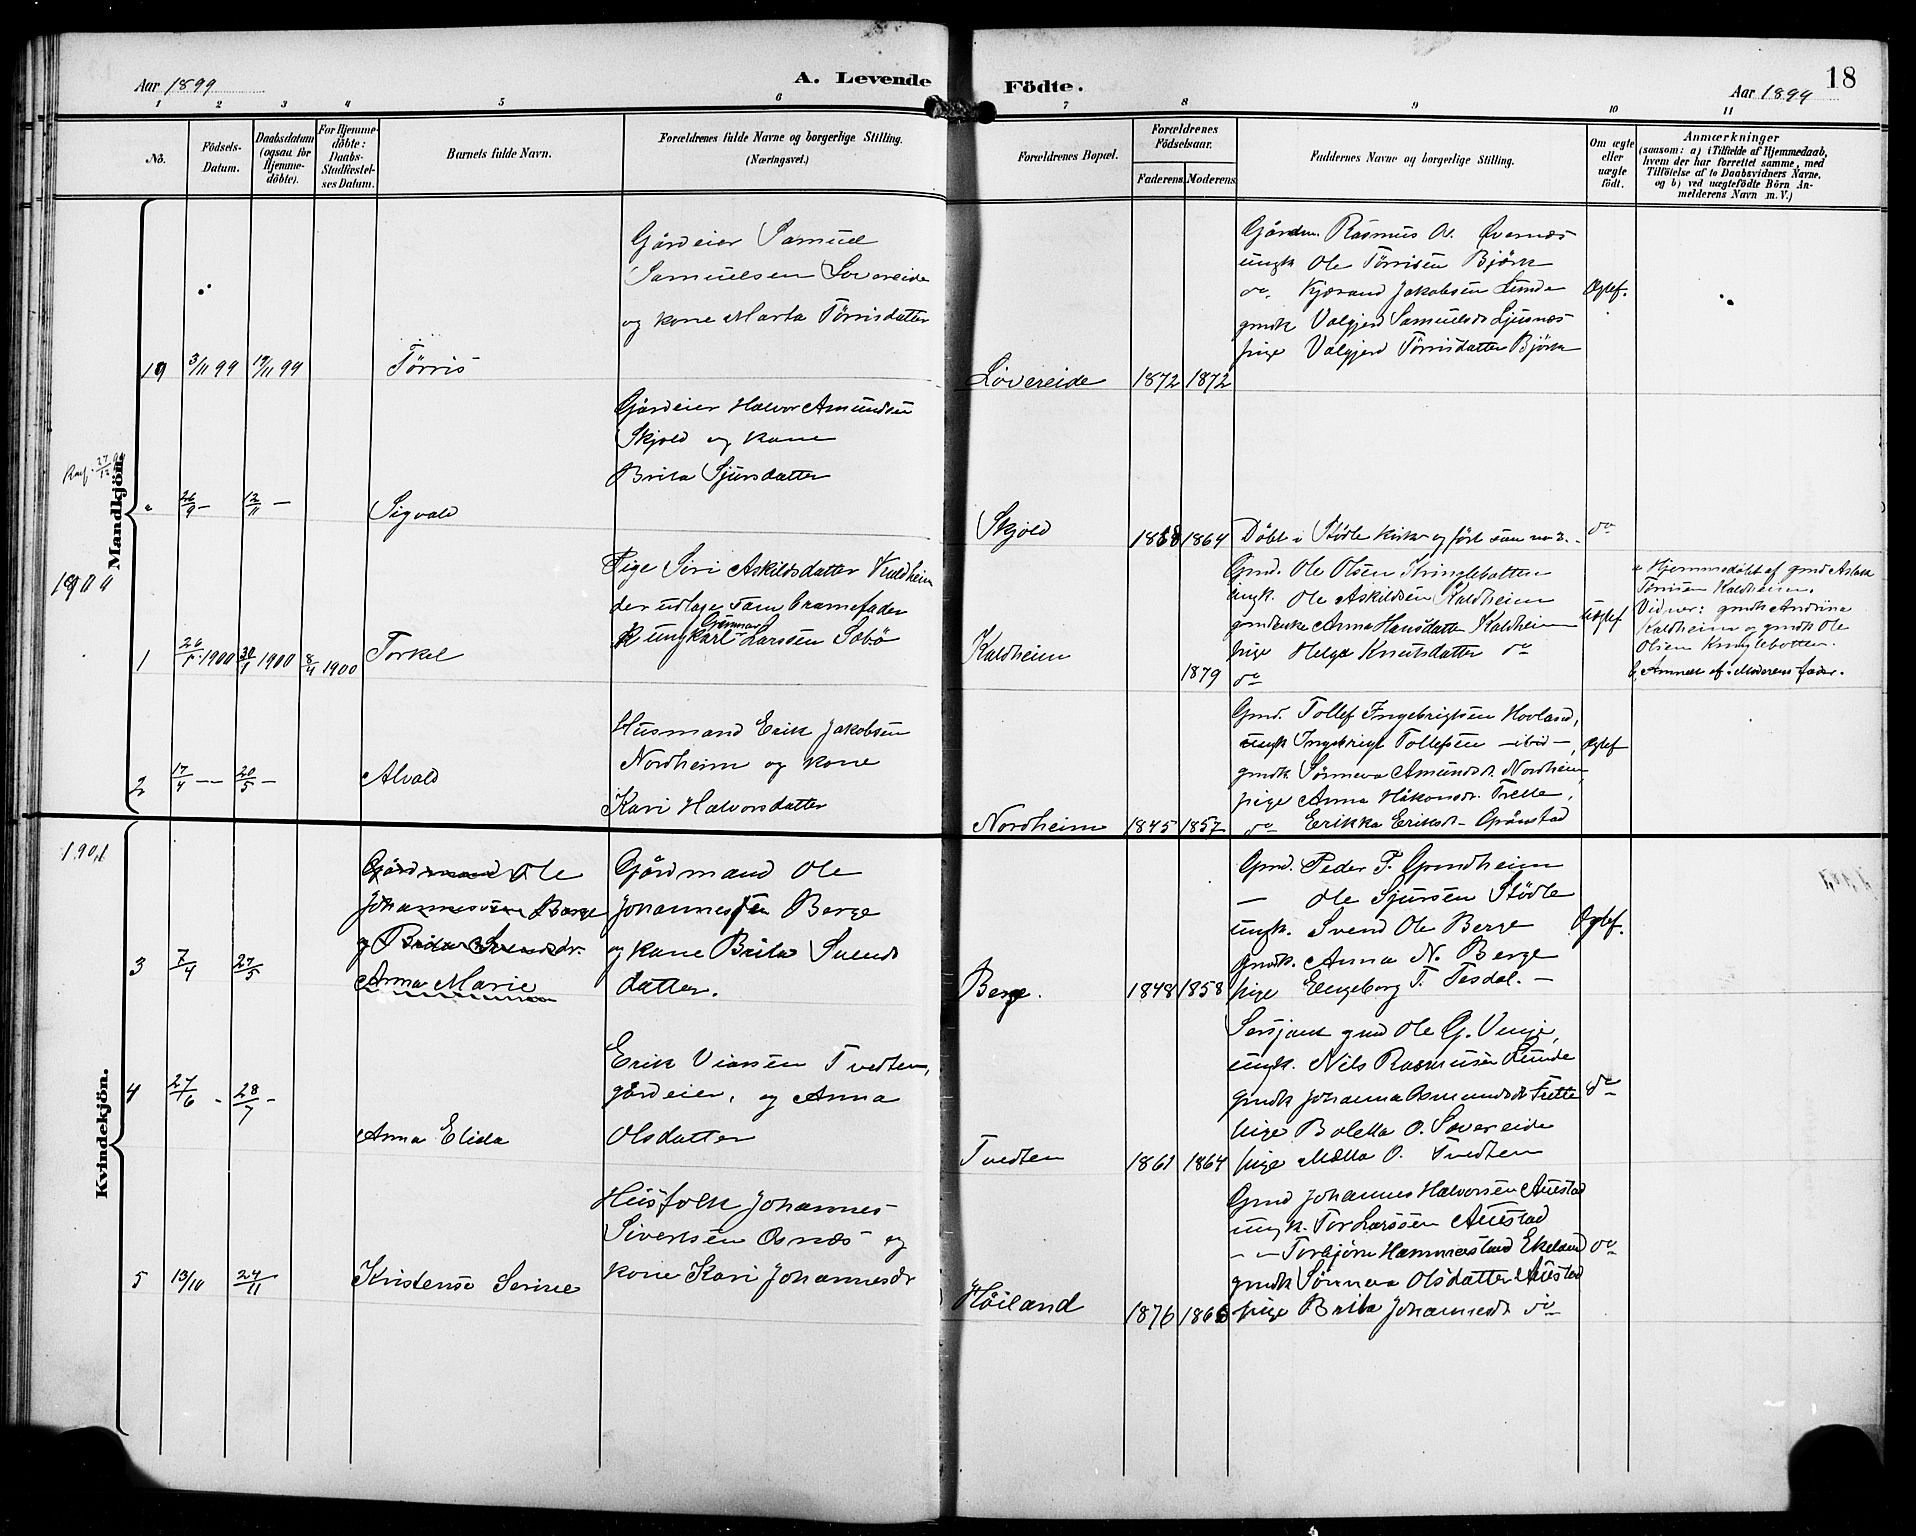 Aar 1899
A. Levende
Födte.
Aar 1899
18
1 2 3 4 5 6 7 8 9 10 11
Nô.
Födsels-
Datum.
Daabsdatum
(ogsaa for
Hjemme-
döbte).
For Hjemme-
döbte:
Daabs-
Stadfæstel-
ses Datum.
Barnets fulde Navn.
Forældrenes fulde Navne og borgerlige Stilling.
(Næringsvei.)
Forældrenes Bopæl.
Forældrenes
Födselsaar.
Faderens.
Moderens.
Faddernes Navne og borgerlige Stilling.
Om ægte
eller
uægte
födt.
Anmærkninger
(saasom: a) i Tilfælde af Hjemmedaab,
hvem der har forrettet samme, med
Tilföielse af to Daabsvidners Navne,
og b) ved uægtefödte Börn An-
melderens Navn m. V.)
Mandkjön.
19 3/11 99 19/11 99
Tørris
Gårdeier Samuel
Samuelsen Løvereide
og kone Marta Tørrisdatter
Løvereide
1872 1872
Rasmus O. Øvernæs
ungk Ole Tørrisen Bjørk
do. Kjærand Jakobsen Lunde
gmdk Valgjerd Samuelsdr Ljusnæs
pige Valgjerd Tørrisdatter Bjørk
Ægtef.
27/12 99
26/9 — 12/11 —
Sigvald
Gårdeier Halvor Amundsen
Skjold og kone
Brita Sjursdatter
Skjold
1864
Døbt i Stødle Kirke og ført som no 2.
do
1900
1 26/1 1900 30/1 1900 8/4 1900
Torkel
Pige Siri Askildsdatter Kaldheim
der udlagt som barnefader
Gunnar
ungkarl Larssen Sæbø
Kaldheim
1879
Gmd. Ole Olsen Kringlebotten
ungk. Ole Askildsen Kaldheim
gmdenke Anna Hansdatter Kaldheim
pige Helga Knutsdatter do
do
Uægtef
a Hjemmedøbt af gmd Aslak
Tørrisen Kaldheim.
Vidner: gmdk Andrina
Kaldheim og gmdk Ole
Olsen Kringlebotten.
b, Anmeldt af Moderens fader.
2 17/4 — 20/5 —
Alvald
Husmand Erik Jakobsen
Nordheim og kone
Kari Halvorsdatter
Nordheim
1845 1857
Gmd. Tollef Ingebrigtsen Hovland,
ungk Ingebrigt Tollefsen — ibid —,
gmdk Sønneva Amundsdr. Nordheim,
pige Anna Håkonsdr. Trette,
do Erikka Eriksdr. Grønstad
Ægtef
Kvindekjön.
1901
3 7/4 27/5
Gårdmand Ole
Johannessen Berge
og Brita Svendsdr.
Anna Marie
Gårdmand Ole
Johannessen Berge
og kone Brita Svends
datter.
Berge.
1848 1858
Gmd. Peder T. Grindheim
— Ole Sjursen Stødle
ungk. Svend Ole Berge
gmdk. Anna N. Berge
pige Engeborg T. Tesdal. —
Ægtef.
4 27/6 — 28/7 —
Anna Elida
Erik Tvedten,
gårdeier, og Anna
Olsdatter
Tvedten
1861 1864
Sersjant gmd Ole G. Vinje,
ungk. Nils Rasmusen Lunde
gmdk Johanna Osmundsdr Trette
pige Boletta O. Løvereide
pige Metta O. Tvedten
do
5 13/10 24/11
Kristense Serine
Husfolk Johannes
Sivertsen Osnæs og
kone Kari Johannesdr
Høiland
1876 1866
Gmd Johannes Halvorsen Austad
ungk. Tor Larssen Austad
— — Torbjørn Hammerstad Ekeland
gmdk Sønneva Olsdatter Austad
pige Brita Johannesdr do
do